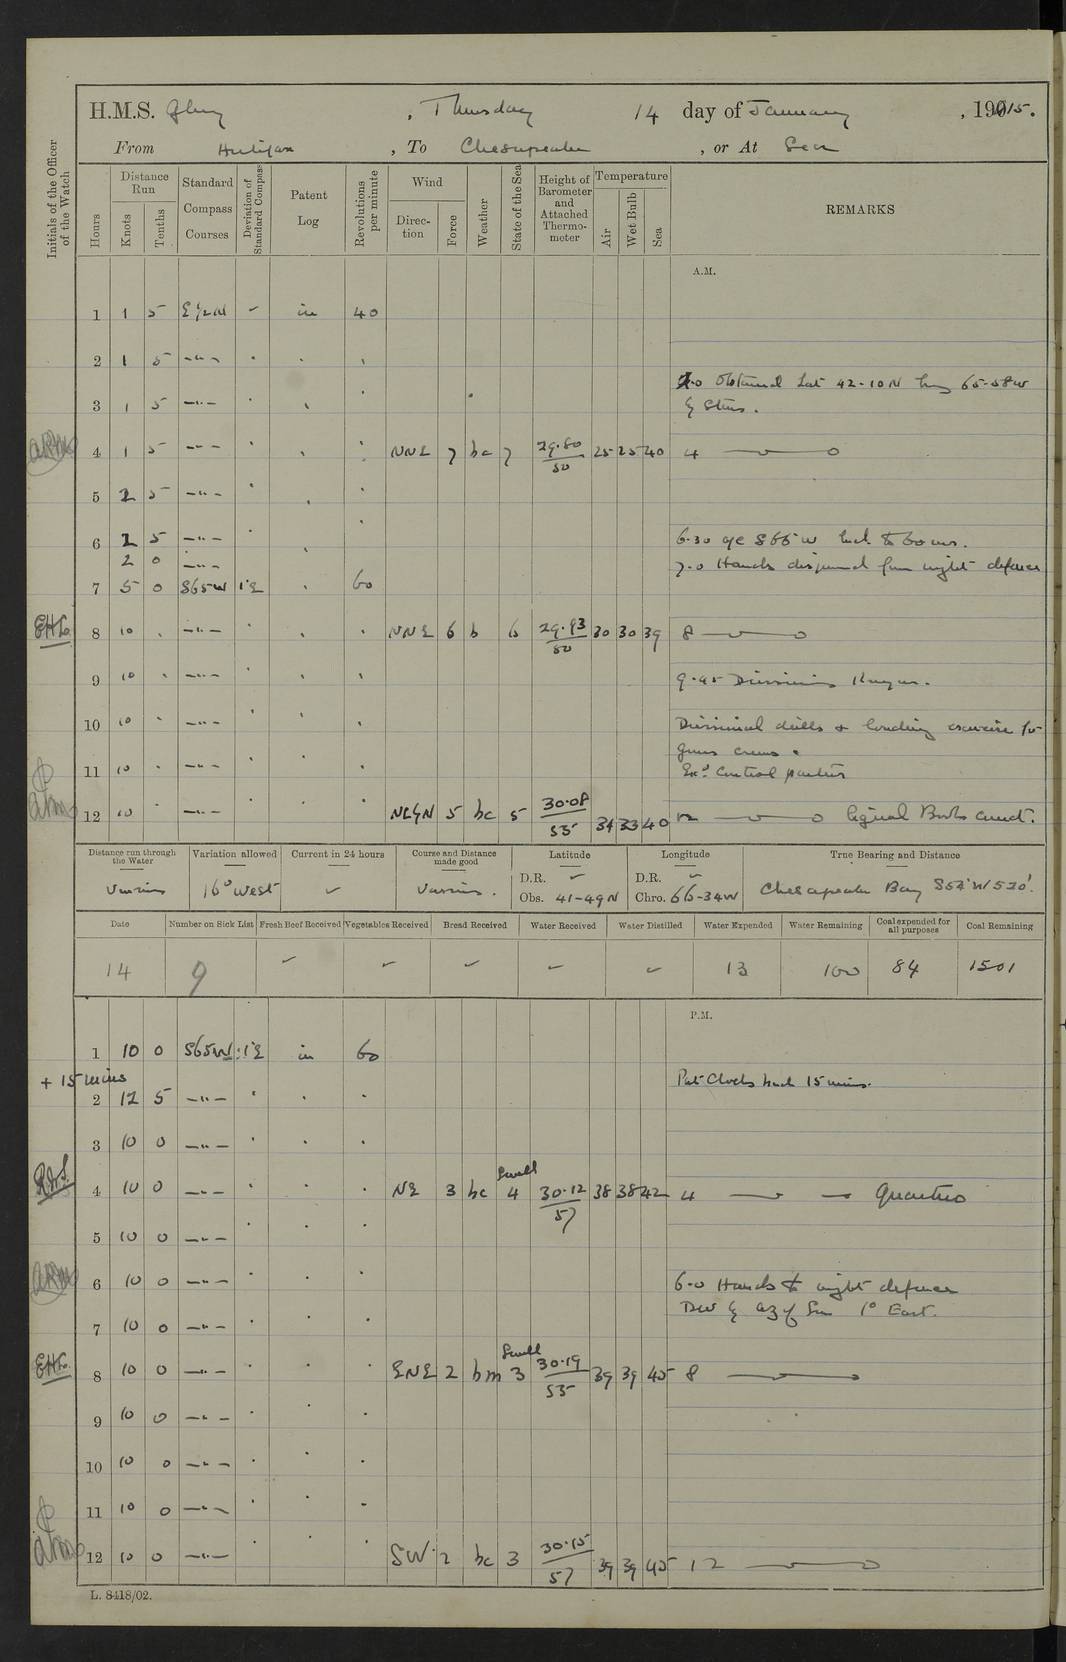 H.M.S. Glory , Thursday 14 day of January , 1915.
From Halifax , To Chesapeake , or At Sea
Initials of the Officer of the Watch
Hours
Distance Run
Knots
Tenths
Standard Compass Courses
Deviation of Standard Compass
Patent Log
Revolutions per minute
Wind
Direction
Force
Weather
State of the Sea
Height of Barometer and Attached Thermometer
Temperature
Air
Wet Bulb
Sea
REMARKS
A.M.
1 1 5 E½N - in 40
2 1 5 -"-
2.0 Obtained Lat 42-10N Long 65-58W
3 1 5 -"- by Stars.
4 1 5 -"- NNE 7 bc 7 29.80/50 25 25 40 4
5 1 5 -"-
6 1 5 -"- 6.30 a/c S65W Incd to 60 revs.
2 0 -"- 7.0 Hands dispersed from night defence
7 5 0 S65W 1°E 60
EHL 8 10 . -"- NNE 6 b 6 29.93/50 30 30 39 8
9 10 . -"- 9.45 Divisions Prayers.
10 10 . -"- Divisional drills & loading exercise for
guns crews.
11 10 . -"- Exd Control parties
12 10 -"- NEbyN 5 bc 5 30.08/55 34 33 40 12 Signal Books correct.
Distance run through the Water
Various
Variation allowed
16° West
Current in 24 hours
Course and Distance made good
Various.
Latitude
D.R.
Obs. 41-49N
Longitude
D.R.
Chro. 66-34W
True Bearing and Distance
Chesapeake Bay S54°W 520'.
Date Number on Sick List Fresh Beef Received Vegetables Received Bread Received Water Received Water Distilled Water Expended Water Remaining Coal expended for all purposes Coal Remaining
14 9 13 100 84 1501
P.M.
1 10 0 S65W 1°E in 60
+ 15 mins Put Clocks back 15 mins.
2 12 5 -"-
3 10 0 -"-
4 10 0 -"- NE 3 bc Swell 4 30.12/57 38 38 42 4 Quarters
5 10 0 -"-
6 10 0 -"- 6.0 Hands to night defence
Dev by az of Sun 1° East.
7 10 0 -"-
EHL 8 10 0 -"- ENE 2 bm Swell 3 30.19/55 39 39 45 8
9 10 0 -"-
10 10 0 -"-
11 10 0 -"-
12 10 0 -"- SW 2 bc 3 30.15/57 39 39 45 12
L. 8418/02.